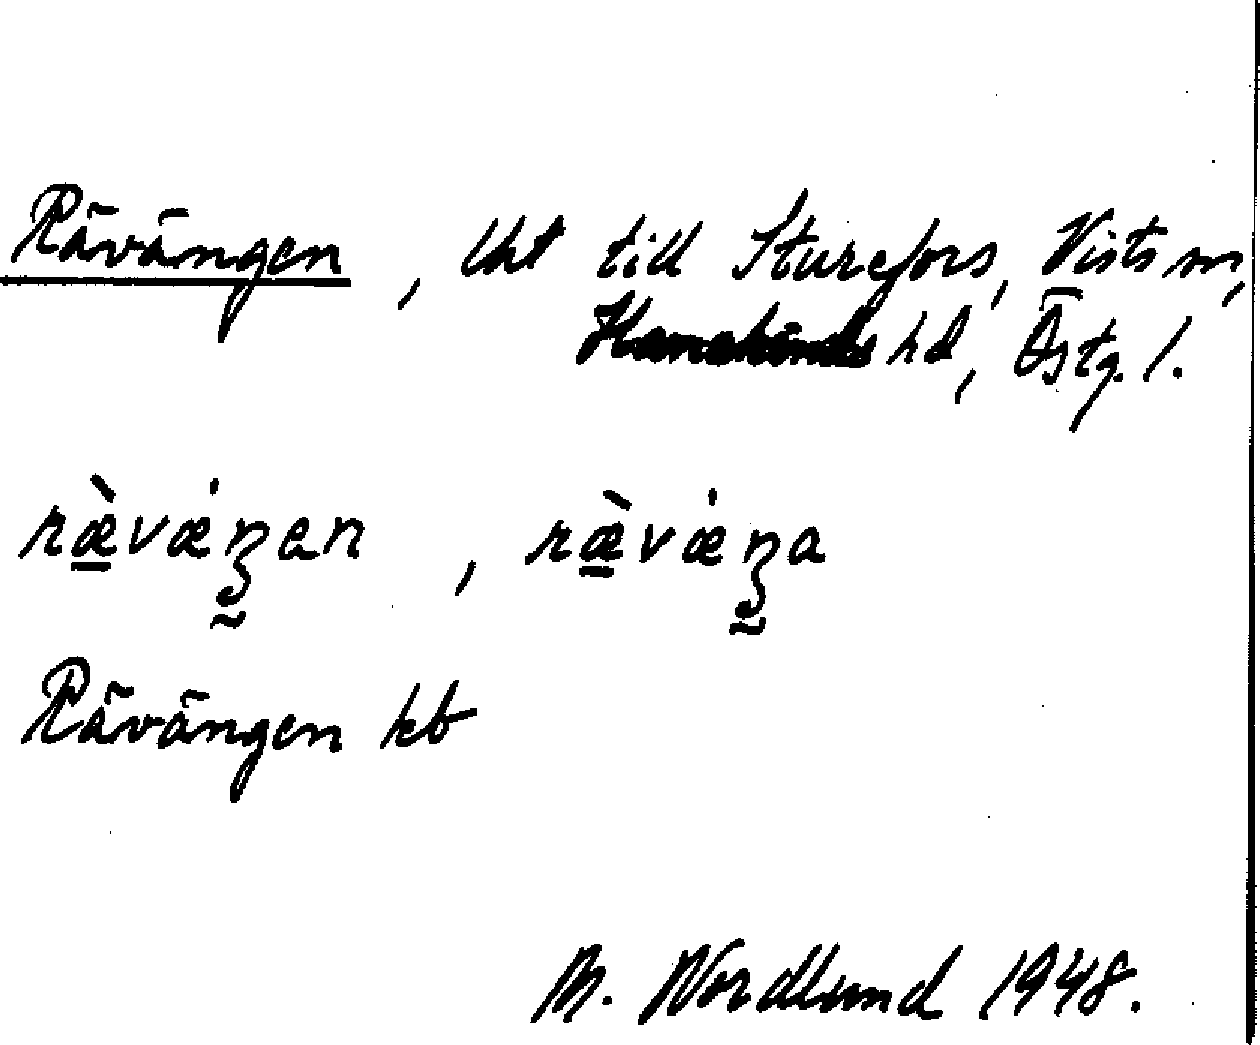 Rävängen, lht till Sturefors, Vists sn,
Hanekinds hd, Östg. l.
ræ̀væŋen, ræ̀væŋa
Rävängen kb
M. Nordlund 1948.